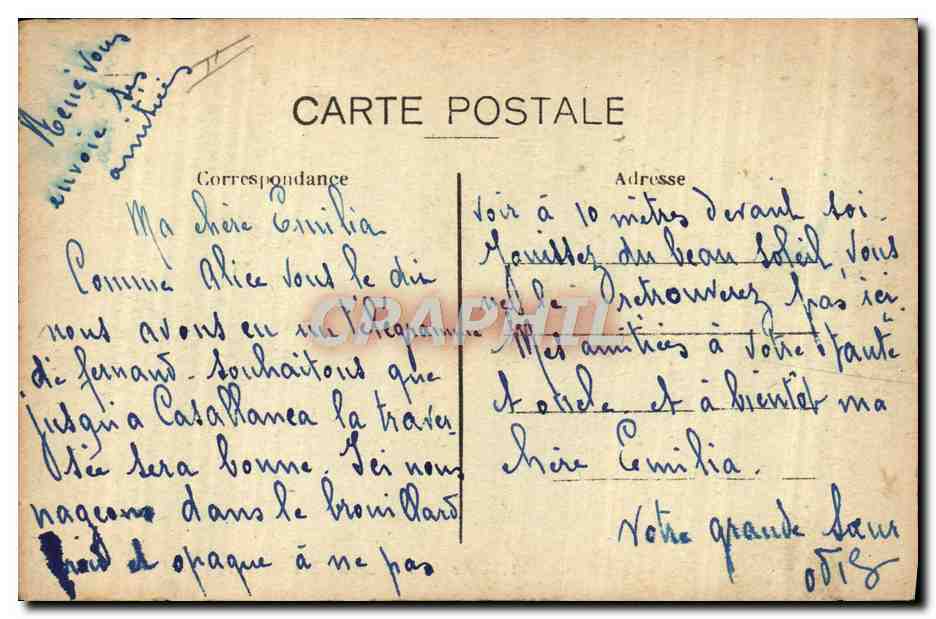 René vous
envoie ses
amitiés
CARTE POSTALE
Correspondance
Adresse
Ma chère Emilia
Comme Alice vous le dit
nous avons eu un télégramme
de fernand. souhaitons que
jusqu'a Casablanca la traver-
sée sera bonne. Ici nous
nageons dans le brouillard
froid et opaque à ne pas
voir à 10 mètres devant soi.
Jouissez du beau soleil, vous
ne le retrouverez pas ici.
Mes amitiés à votre tante
et oncle et à bientôt ma
chère Emilia.
Votre grande Sœur
CPAPHIL